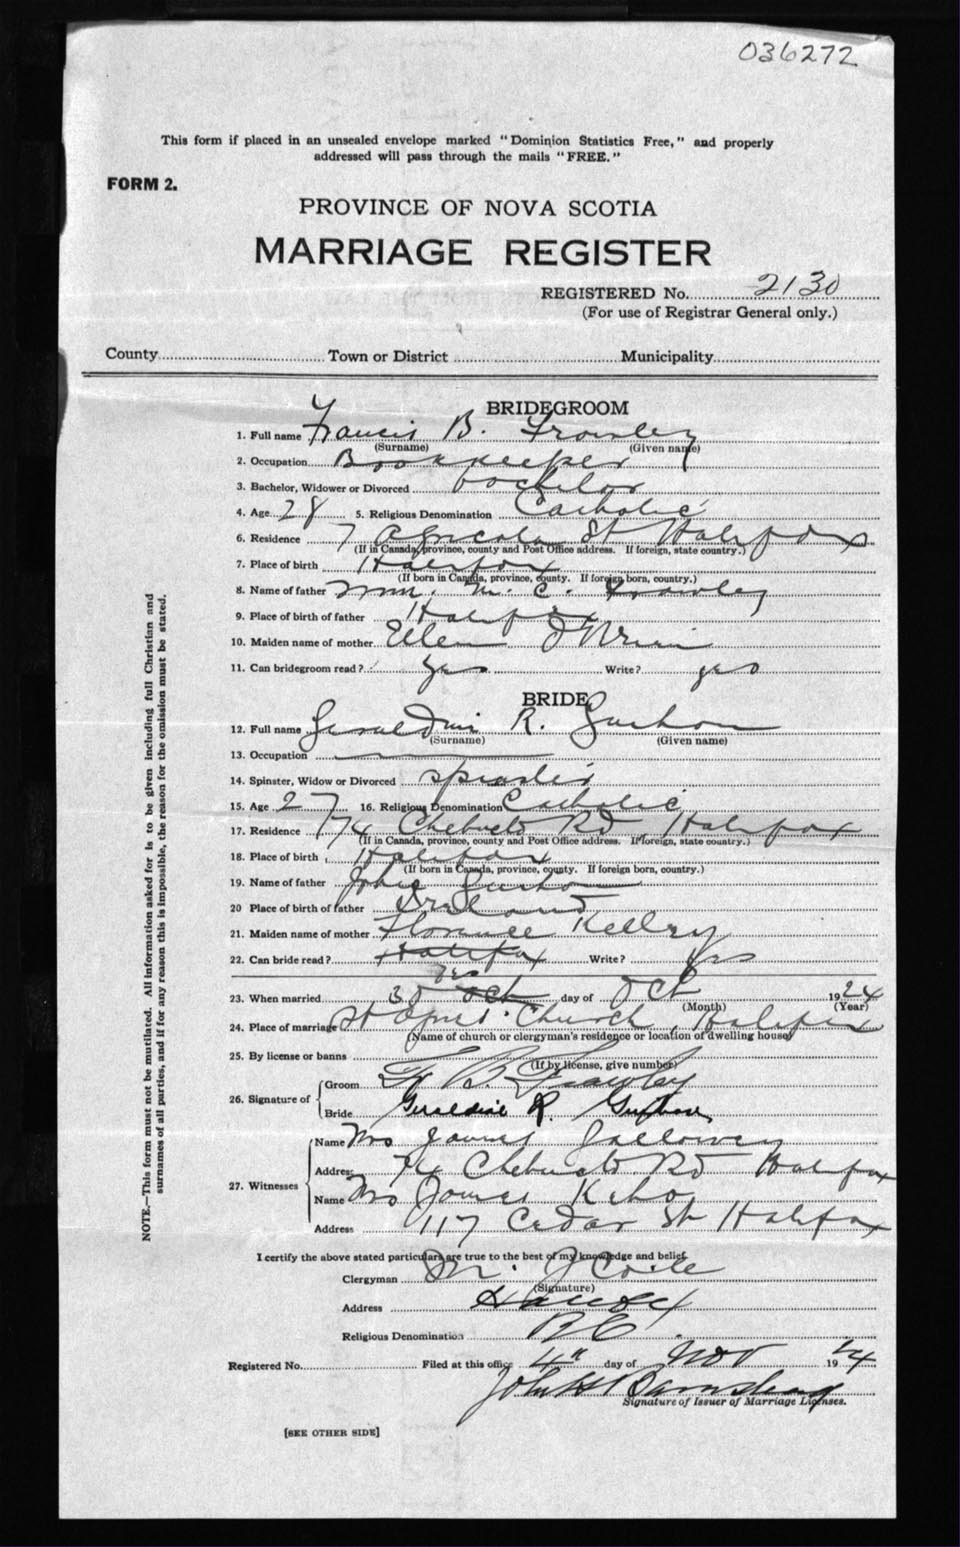 036272
This form if placed in an unsealed envelope marked "Dominion Statistics Free," and properly
addressed will pass through the mails "FREE."
FORM 2.
PROVINCE OF NOVA SCOTIA
MARRIAGE REGISTER
REGISTERED No. 2130
(For use of Registrar General only.)
County Town or District Municipality
BRIDEGROOM
1. Full name Francis B. Frawley
(Surname) (Given name)
2. Occupation Bookkeeper
3. Bachelor, Widower or Divorced bachelor
4. Age 28 5. Religious Denomination Catholic
6. Residence 7 Agricola St Halifax
(If in Canada, province, county and Post Office address. If foreign, state country.)
7. Place of birth Halifax
(If born in Canada, province, county. If foreign born, country.)
8. Name of father Wm. M. C. Frawley
9. Place of birth of father Halifax
10. Maiden name of mother Ellen O'Brien
11. Can bridegroom read? yes Write? yes
BRIDE
12. Full name Geraldine R.
(Surname) (Given name)
13. Occupation
14. Spinster, Widow or Divorced spinster
15. Age 27 16. Religious Denomination Catholic
17. Residence 74 Chebucto Rd, Halifax
(If in Canada, province, county and Post Office address. If foreign, state country.)
18. Place of birth Halifax
(If born in Canada, province, county. If foreign born, country.)
19. Name of father John
20 Place of birth of father Ireland
21. Maiden name of mother Florence Kelley
22. Can bride read? Halifax Write? yes
yes
23. When married 30 Oct day of Oct 1924
(Month) (Year)
24. Place of marriage St Agnes Church, Halifax
(Name of church or clergyman's residence or location of dwelling house)
25. By license or banns
(If by license, give number)
26. Signature of
Groom B. Frawley
Bride Geraldine R.
27. Witnesses
Name Mrs James Galloway
Address 74 Chebucto Rd Halifax
Name Mrs James Kehoe
Address 117 Cedar St Halifax
I certify the above stated particulars are true to the best of my knowledge and belief.
Clergyman
(Signature)
Address Halifax
Religious Denomination RC
Registered No. Filed at this office 4th day of Nov 1924
John H Barnstead
Signature of Issuer of Marriage Licenses.
[SEE OTHER SIDE]
NOTE.—This form must not be mutilated. All information asked for is to be given including full Christian and
surnames of all parties, and if for any reason this is impossible, the reason for the omission must be stated.